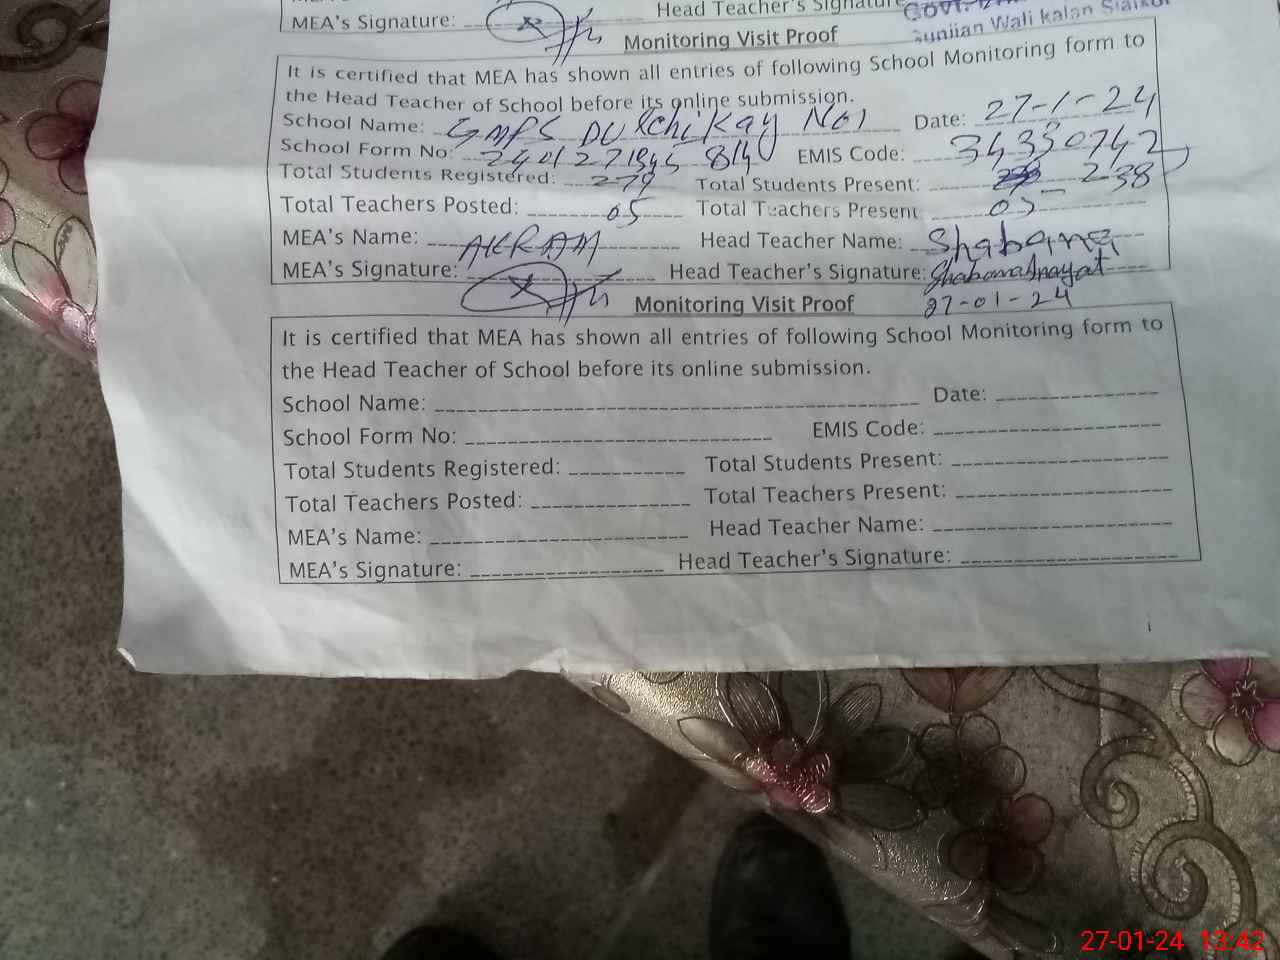 MEA's Signature: Head Teacher's Signature
Sunjian Wali kalan Sialkot
Monitoring Visit Proof
It is certified that MEA has shown all entries of following School Monitoring form to
the Head Teacher of School before its online submission.
School Name: GMPS DULChiKay No1 Date: 27-1-24
School Form No: EMIS Code: 34330742
Total Students Registered: 279 Total Students Present: 238
Total Teachers Posted: 05 Total Teachers Present 05
MEA's Name: AKRAM Head Teacher Name: Shabana
MEA's Signature: Head Teacher's Signature: Shabana Inayat
Monitoring Visit Proof 27-01-24
It is certified that MEA has shown all entries of following School Monitoring form to
the Head Teacher of School before its online submission.
School Name: Date:
School Form No: EMIS Code:
Total Students Registered: Total Students Present:
Total Teachers Posted: Total Teachers Present:
MEA's Name: Head Teacher Name:
MEA's Signature: Head Teacher's Signature:
27-01-24 13:42